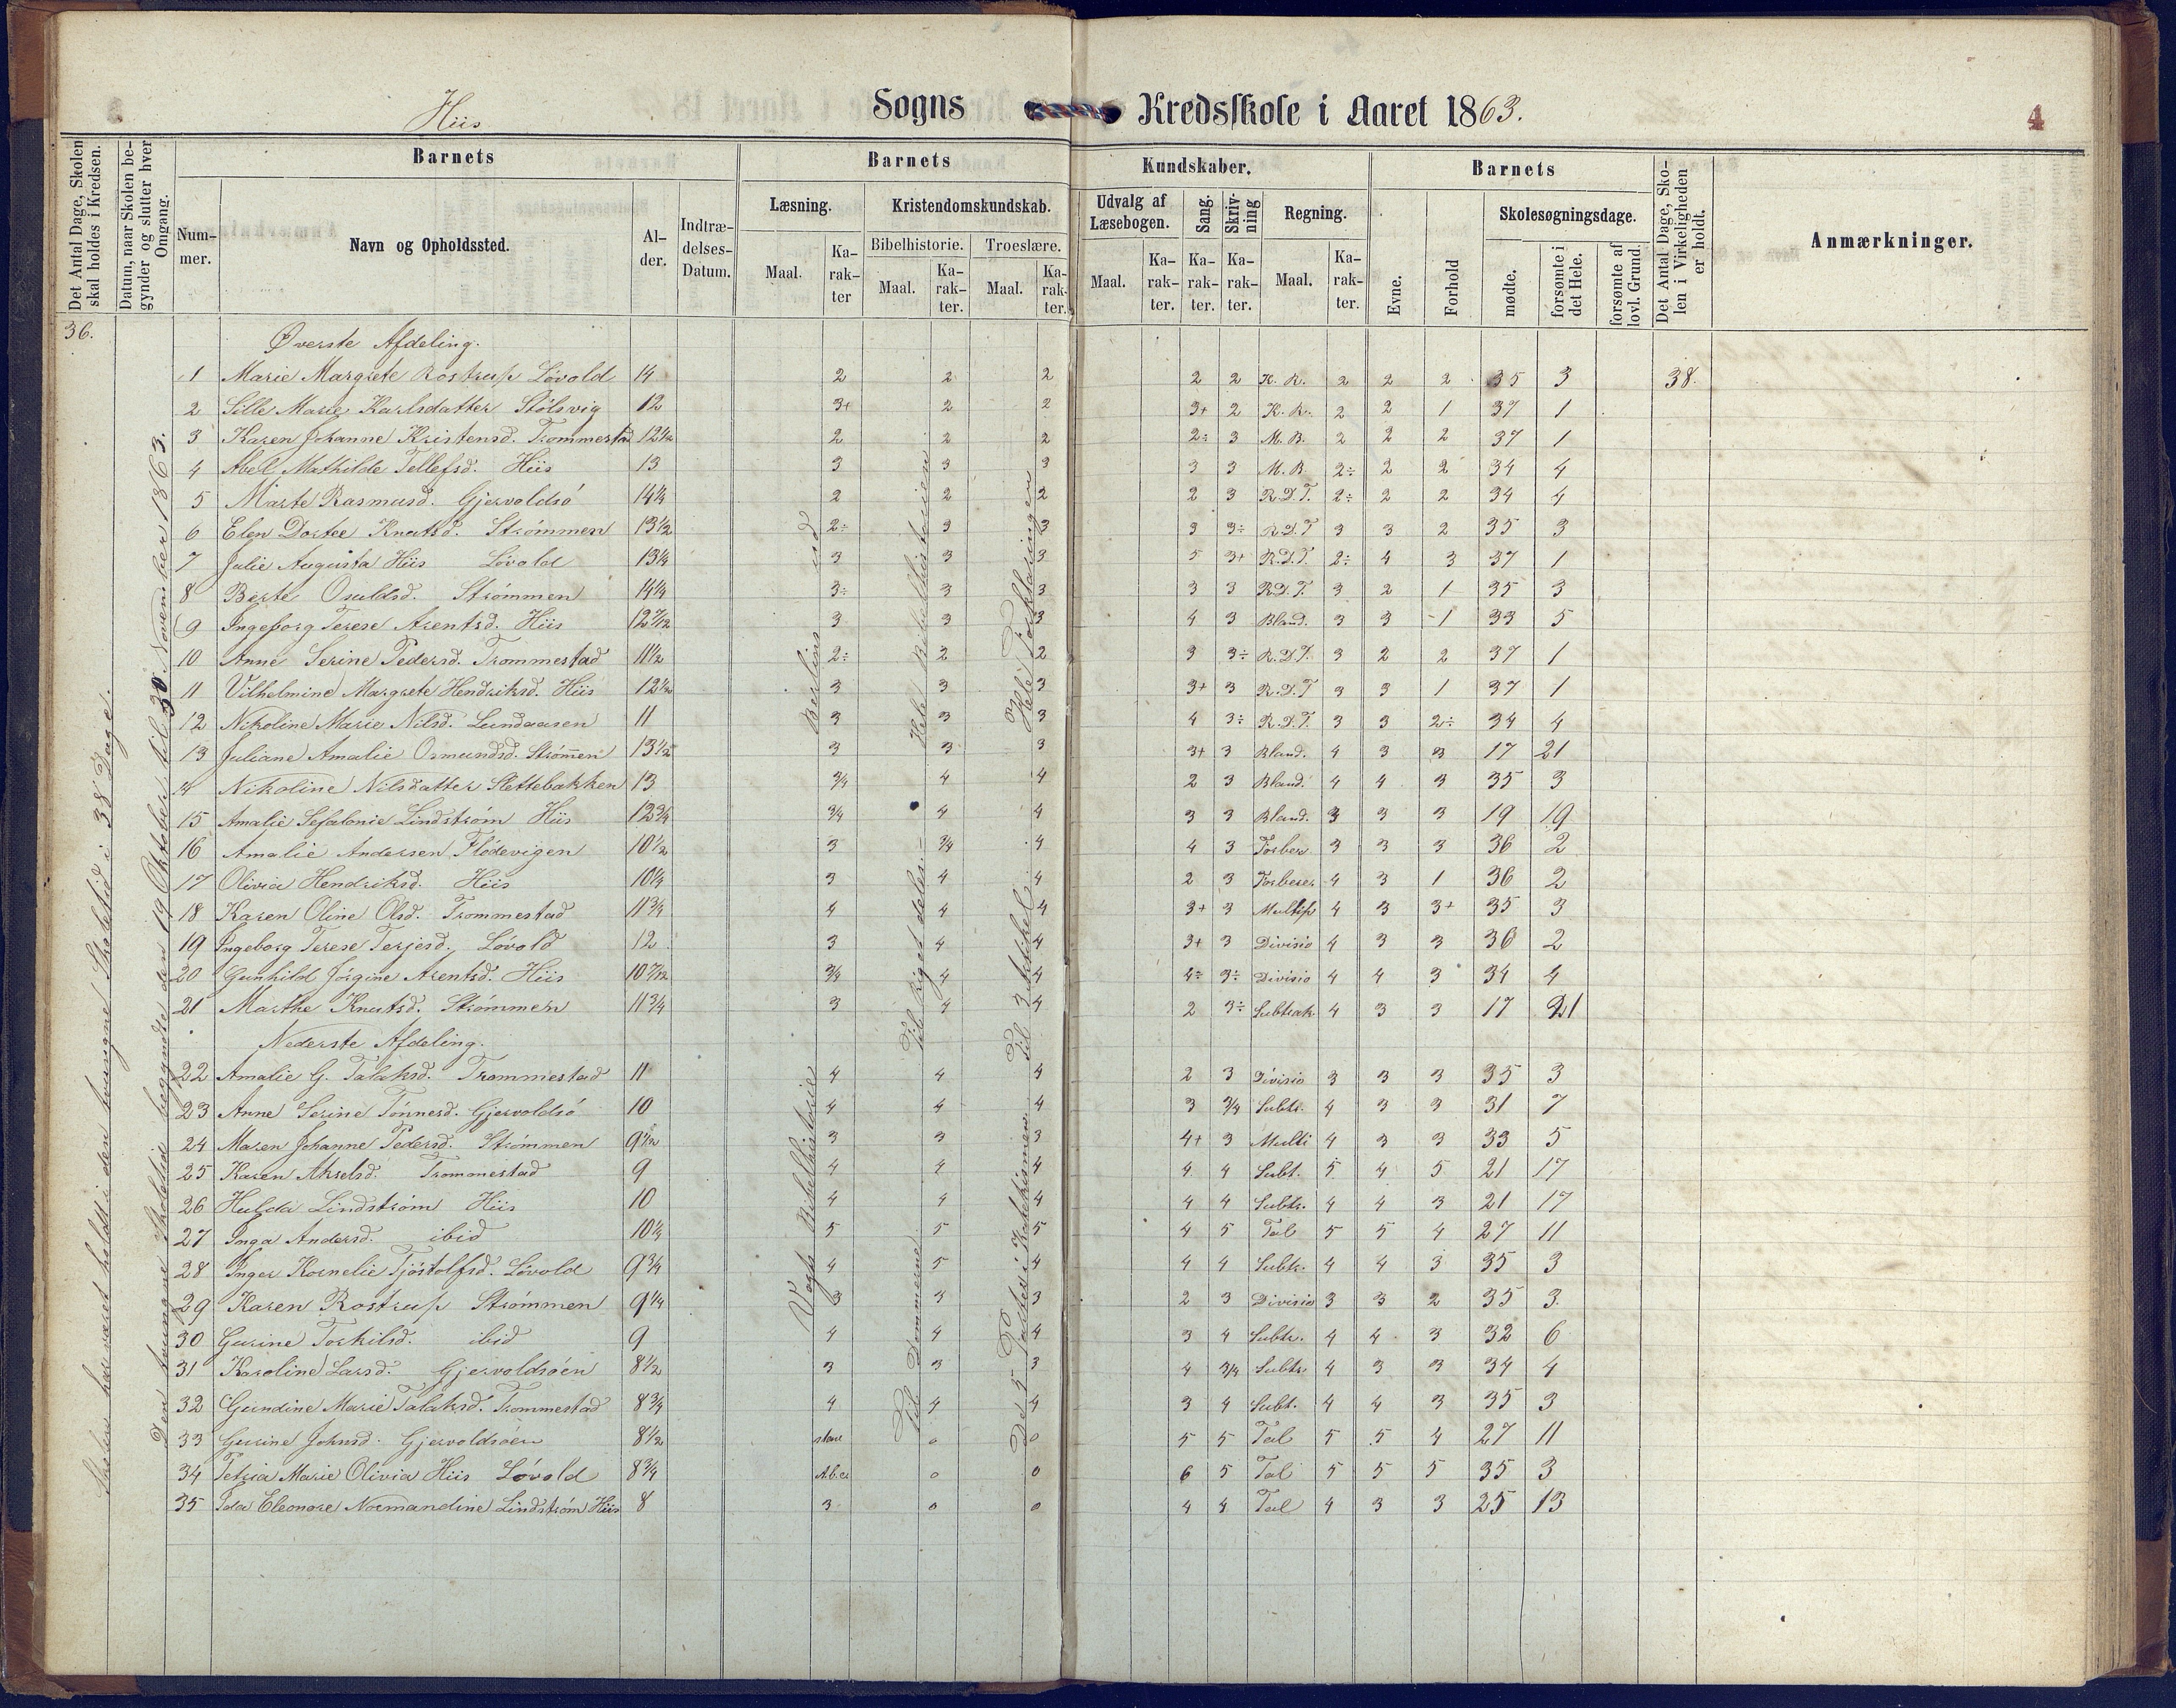 Hiis Sogns Kredsskole i Aaret 1863. 4
Det Antal Dage, Skolen skal holdes i Kredsen.
Datum, naar Skolen begynder og slutter hver Omgang.
Barnets
Barnets
Kundskaber.
Barnets
Det Antal Dage, Skolen i Virkeligheden er holdt.
Anmærkninger.
Nummer.
Navn og Opholdssted.
Alder.
Indtrædelses-Datum.
Læsning.
Kristendomskundskab.
Bibelhistorie.
Troeslære.
Udvalg af Læsebogen.
Sang.
Skrivning
Regning.
Evne.
Forhold
Skolesøgningsdage.
Maal. Karakter Maal. Karakter. Maal. Karakter. Maal. Karakter. Karakter. Karakter. Maal. Karakter.
mødte. forsømte i det Hele. forsømte af lovl. Grund.
36.
Skolen har været holdt i den tvungne Skoletid i 38 Dage.
Den tvungne Skoletid begyndte den 19 Oktober til 30 November 1863.
Øverste Afdeling.
1 Marie Margrete Rostrup Lóvold 14 2 2 2 2 2 K. R. 2 2 2 35 3 38.
2 Sille Marie Karlsdatter Stólsvig 12 3+ 2 2 3+ 2 K. R. 2 2 1 37 1
3 Karen Johanne Kristensd. Trommestad 12 1/2 2 2 2 2÷ 3 M. B. 2 2 2 37 1
4 Abel Mathilde Tellefsd. Hiis 13 3 3 3 3 3 M. B. 2÷ 2 2 34 4
5 Marte Rasmusd. Gjervoldsó 14 1/4 2 2 2 2 3 R. D. T. 2÷ 2 2 34 4
6 Elen Dortee Knutsd. Strómmen 13 1/2 2÷ 3 3 3 3÷ R. D. T 3 3 2 35 3
7 Julie Augusta Hiis Lóvold 13 1/4 3 3 3 5 3+ R. D. T. 2÷ 4 3 37 1
8 Berte Osuldsd. Strómmen 14 1/4 3÷ 3 3 3 3 R. D. T. 3 2 1 35 3
9 Ingeborg Terese Arentsd. Hiis 12 7/12 3 3 3 4 3 Bland. 3 3 1 33 5
10 Anne Serine Pedersd. Trommestad 11 1/2 2÷ 2 2 3 3÷ R. D. T. 3 2 2 37 1
11 Vilhelmine Margrete Hendriksd. Hiis 12 1/2 3 3 3 3+ 3 R. D. T 3 3 1 37 1
12 Nikoline Marie Nilsd. Lundaasen 11 3 3 3 4 3÷ R. D. T. 3 3 2÷ 34 4
13 Juliane Amalie Osmundsd. Strómen 13 1/2 3 3 3 3+ 3 Bland. 4 3 3 17 21
14 Nikoline Nilsdatter Slettebakken 13 3/4 4 4 2 3 Bland. 4 4 3 35 3
15 Amalie Sefalonie Lindstróm Hiis 12 3/4 3/4 4 4 3 3 Bland. 3 3 3 19 19
16 Amalie Andersen Flódevigen 10 1/2 3 3/4 4 4 3 Forber. 3 3 3 36 2
17 Olivia Hendriksd. Hiis 10 1/4 3 4 4 2 3 Forberer 4 3 1 36 2
18 Karen Oline Olsd. Trommestad 11 3/4 4 4 4 3+ 3 Multip 4 3 3+ 35 3
19 Ingeborg Terese Terjesd. Lóvold 12 3 4 4 3+ 3 Divisio 4 3 3 36 2
20 Gunhild Jórgine Arentsd. Hiis 10 7/12 3/4 4 4 4÷ 3÷ Divisio 4 4 3 34 4
21 Marthe Knutsd. Strómmen 11 3/4 3 4 4 2 3÷ Subtrak 4 3 3 17 21
Berlins
Hele Bibelhistorien
Hele Forklaringen
Til Riget deles.
Til 3 Artikel
Nederste Afdeling.
22 Amalie G. Talaksd. Trommestad 11 4 4 4 2 3 Divisio 3 3 3 35 3
23 Anne Serine Tónnesd. Gjervoldsó 10 4 4 4 3 3/4 Subtr. 4 3 3 31 7
24 Maren Johanne Pedersd. Strómmen 9 1/2 3 3 3 4+ 3 Multi 4 3 3 33 5
25 Karen Akselsd. Trommestad 9 4 4 4 4 4 Subt. 5 4 5 21 17
26 Hulda Lindstróm Hiis 10 4 4 4 4 4 Subtr. 4 4 3 21 17
27 Inga Andersd. ibid 10 1/4 5 5 5 4 5 Tal 5 5 4 27 11
28 Inger Kornelie Tjóstolfsd. Lóvold 9 3/4 4 5 4 4 4 Subtr. 4 4 3 35 3
29 Karen Rostrup Strómmen 9 1/4 3 3 3 2 3 Divisio 3 3 2 35 3
30 Gurine Torkilsd. ibid 9 4 4 4 3 4 Subtr. 4 4 3 32 6
31 Karoline Larsd. Gjervoldsóen 8 1/2 3 3 3 4 3/4 Subtr 4 3 3 34 4
32 Gundine Marie Talaksd. Trommestad 8 3/4 4 4 4 3 4 Subt. 4 4 3 35 3
33 Gurine Johnsd. Gjervoldsoen 8 1/2 stave 0 0 5 5 Tal 5 5 4 27 11
34 Petria Marie Olivia Hiis Lóvold 8 3/4 Abc 0 0 6 5 Tal 5 5 5 35 3
35 Ida Eleonore Normandine Lindstróm Hiis 8 3 0 0 4 4 Tal 4 3 3 25 13
Vogts Bibelhistorie
Til Dommerne
De 5 Parter i Katekismen